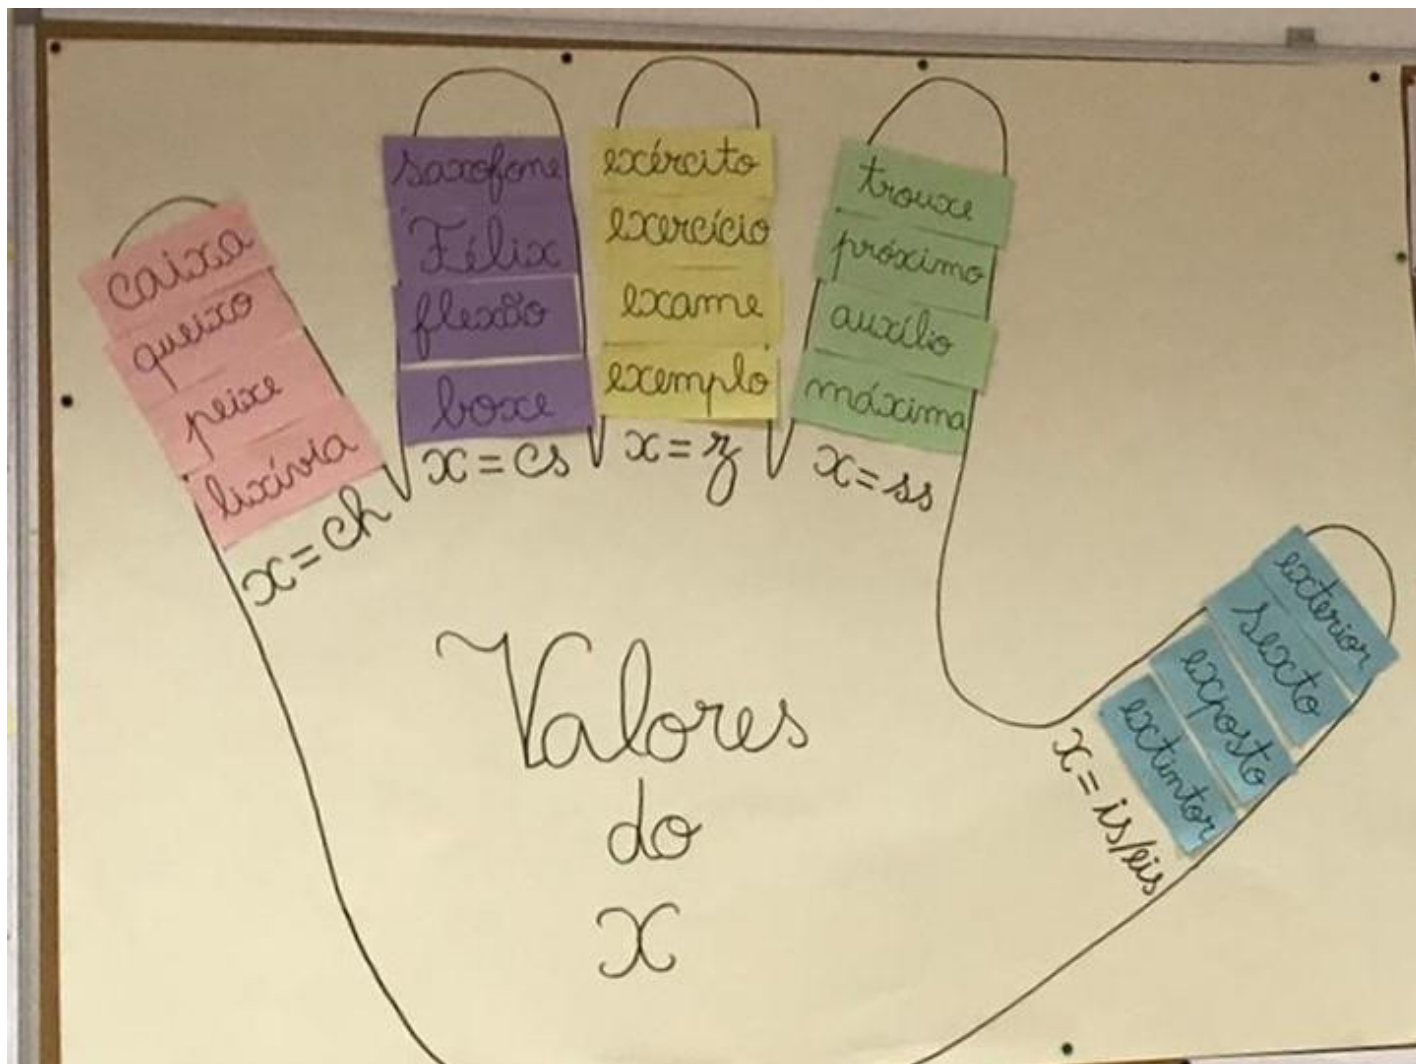 caixa
queixo
peixe
lixívia
x = ch
saxofone
Félix
flexão
boxe
x = cs
exército
exercício
exame
exemplo
x = z
trouxe
próximo
auxílio
máxima
x = ss
exterior
sexto
exposto
extintor
x = is/eis
Valores
do
x